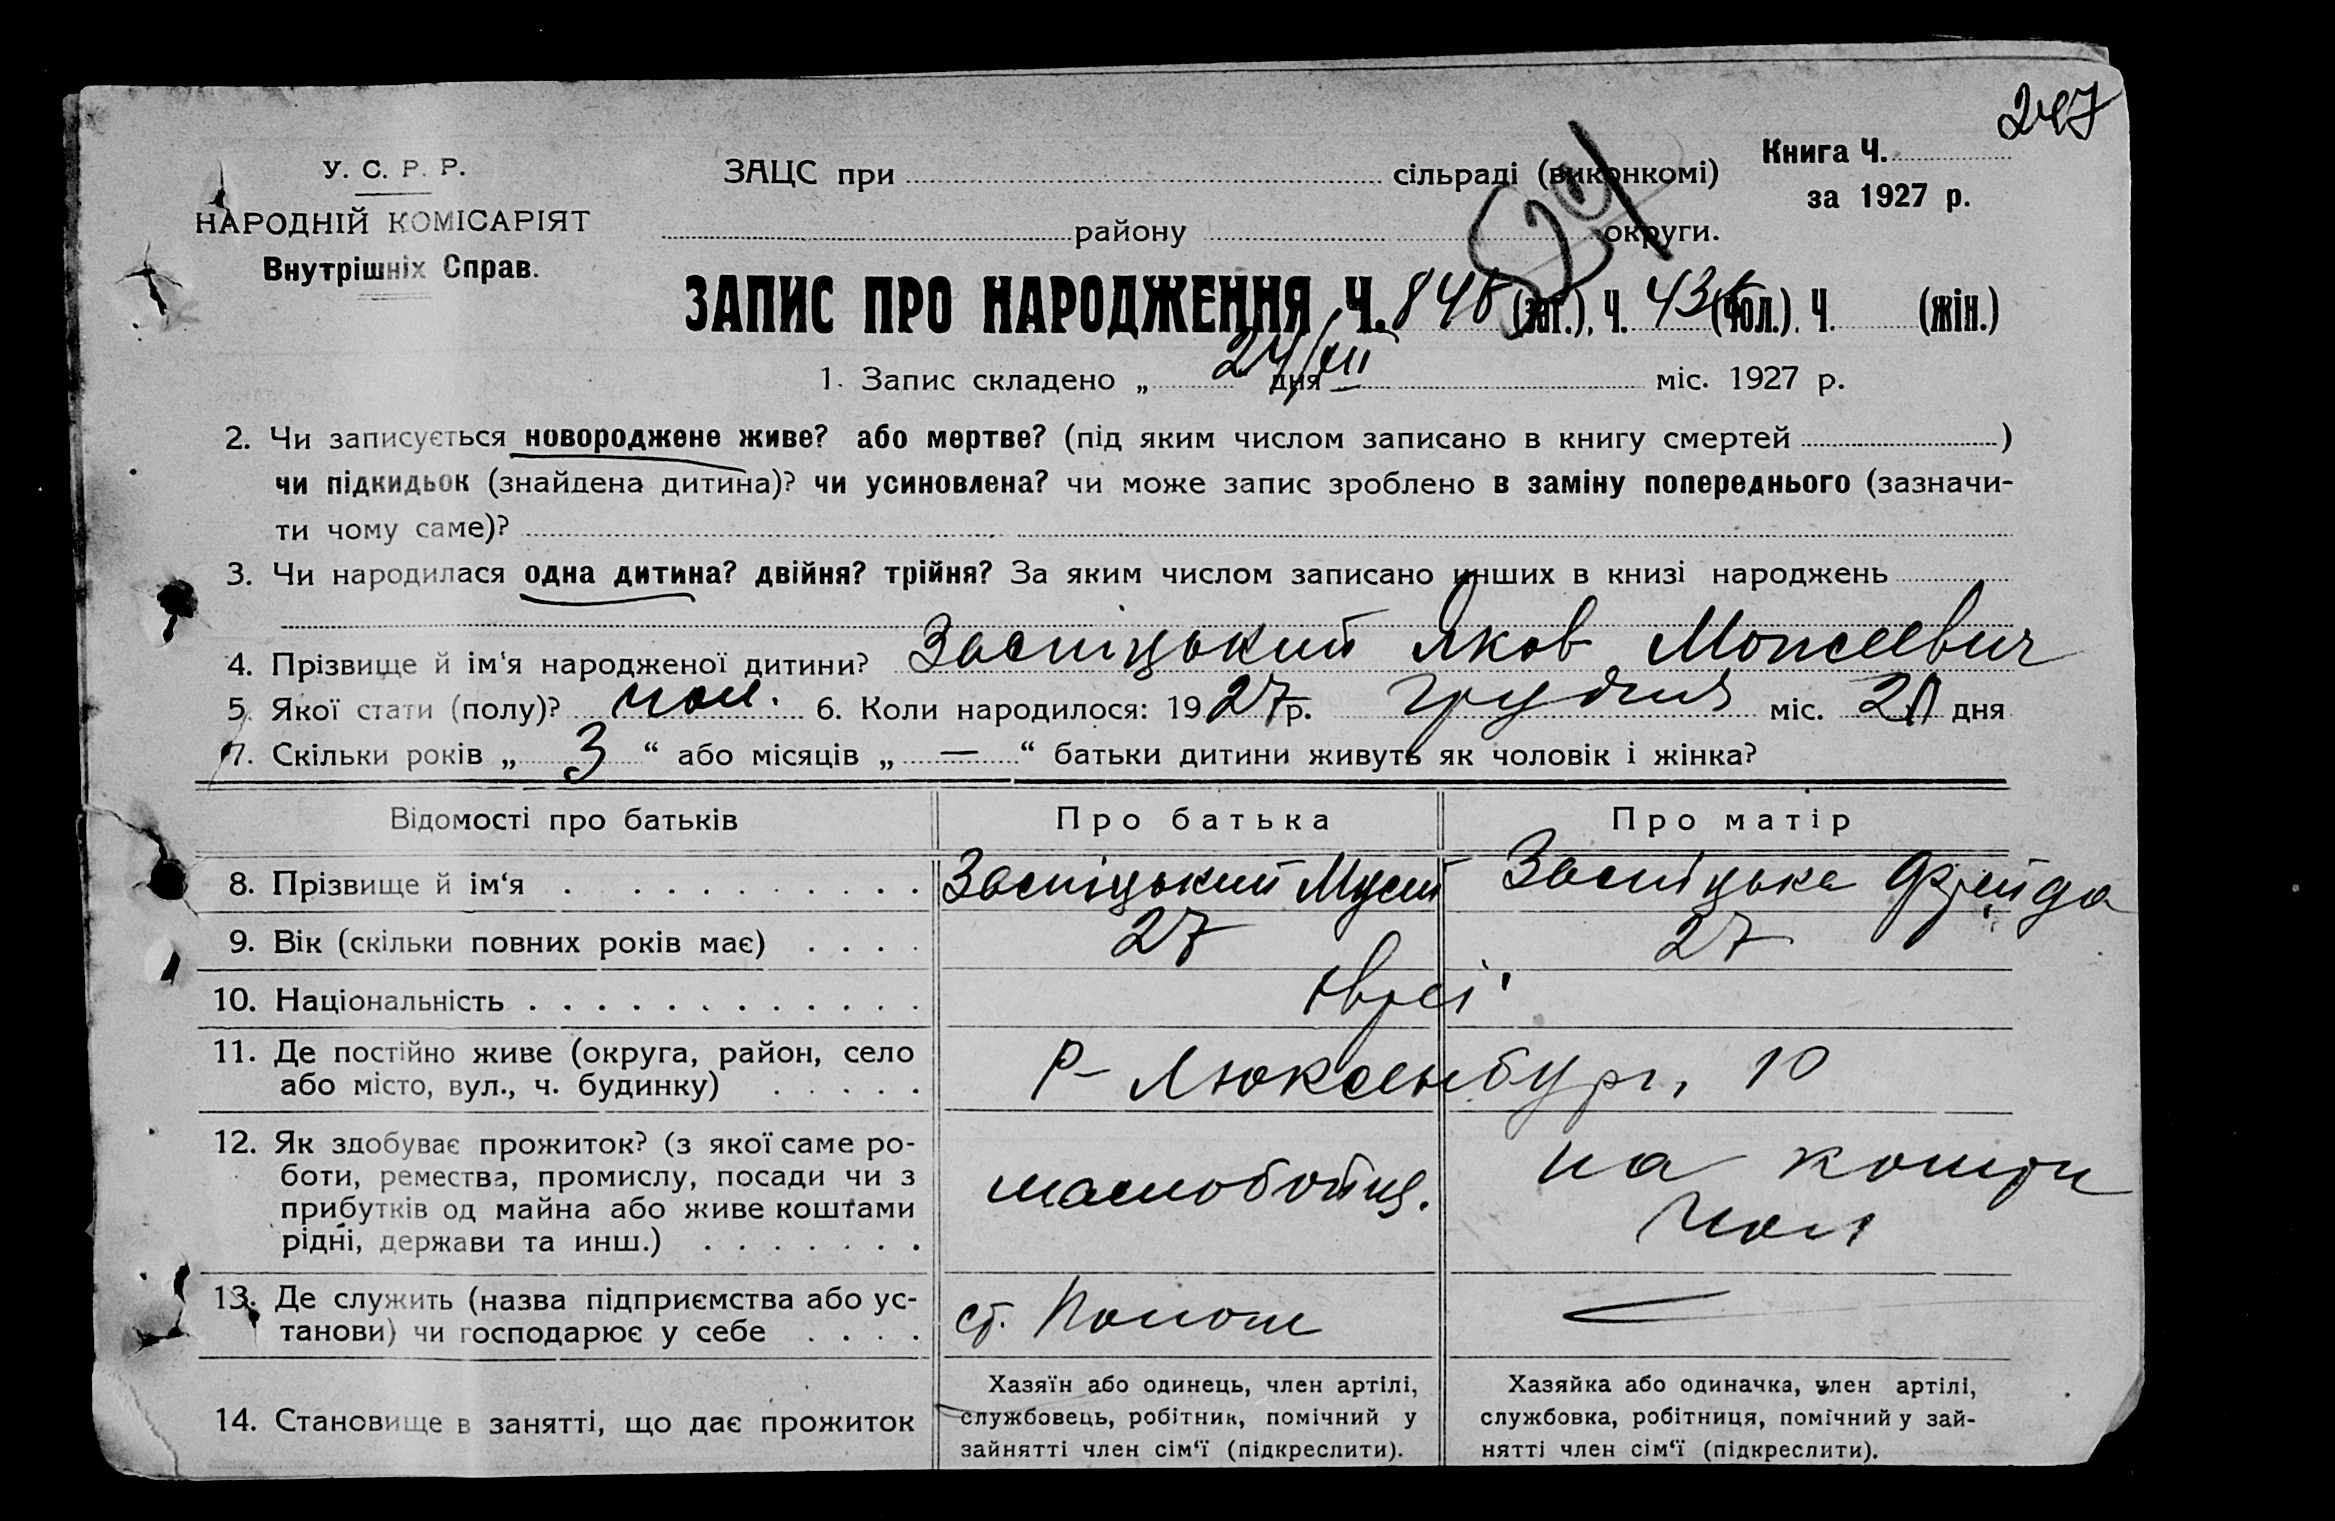 247
У. С. Р. Р.
НАРОДНІЙ КОМІСАРІЯТ
Внутрішніх Справ.
ЗАЦС при сільраді (виконкомі)
району округи.
Книга Ч.
за 1927 р.
ЗАПИС ПРО НАРОДЖЕННЯ Ч. (заг.), Ч. (чол.), Ч. (жін.)
1. Запис складено „ 24/XII дня міс. 1927 р.
2. Чи записується новороджене живе? або мертве? (під яким числом записано в книгу смертей )
чи підкидьок (знайдена дитина)? чи усиновлена? чи може запис зроблено в заміну попереднього (зазначи-
ти чому саме)?
3. Чи народилася одна дитина? двійня? трійня? За яким числом записано инших в книзі народжень
4. Прізвище й ім‘я народженої дитини? Заспіцький Яков Мойсеевич
5. Якої стати (полу)? чол. 6. Коли народилося: 1927 р. грудня міс. дня
7. Скільки років „ 3 “ або місяців „ — “ батьки дитини живуть як чоловік і жінка?
Відомості про батьків Про батька Про матір
8. Прізвище й ім‘я . . . . . . . . . . Заспіцький Мусий Заспіцька Фрейда
9. Вік (скільки повних років має) . . . . 27 27
10. Національність . . . . . . . . . . . . . євреї
11. Де постійно живе (округа, район, село
або місто, вул., ч. будинку) . . . . . Р- Люксенбург, 10
12. Як здобуває прожиток? (з якої саме ро-
боти, ремества, промислу, посади чи з
прибутків од майна або живе коштами
рідні, держави та инш.) . . . . . . . маслобойщ. на кошти
чол
13. Де служить (назва підприємства або ус-
танови) чи господарює у себе . . . . ст. Полон —
14. Становище в занятті, що дає прожиток
Хазяїн або одинець, член артілі,
службовець, робітник, помічний у
зайнятті член сім‘ї (підкреслити).
Хазяйка або одиначка, член артілі,
службовка, робітниця, помічний у зай-
нятті член сім‘ї (підкреслити).